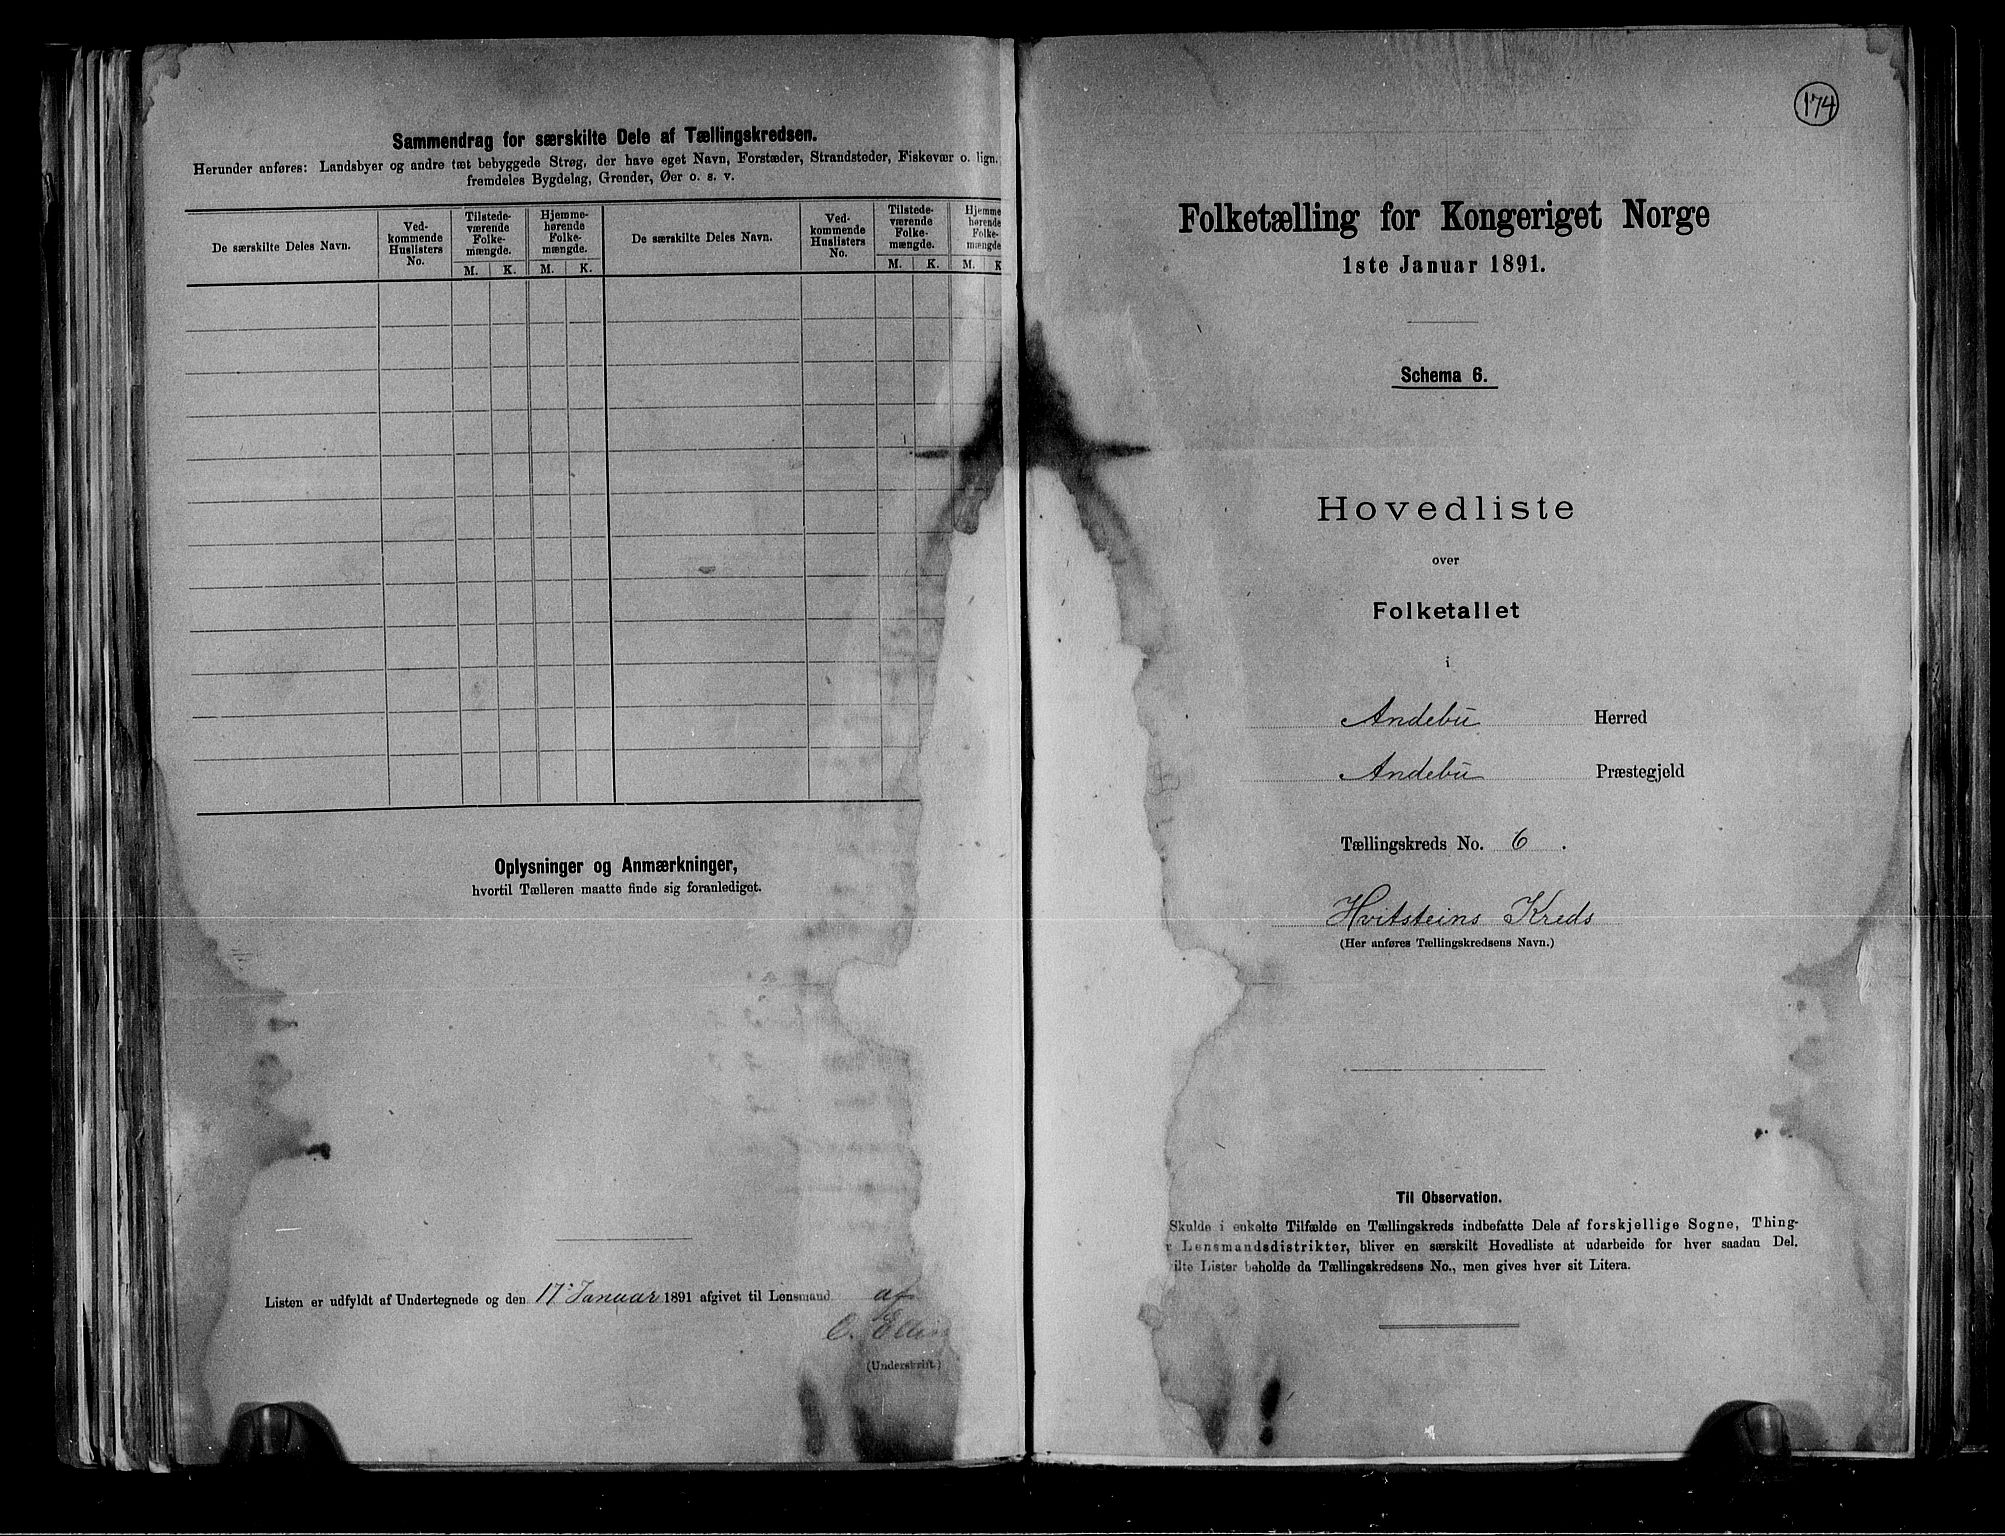 Sammendrag for særskilte Dele af Tællingskredsen.
Herunder anføres: Landsbyer og andre tæt bebyggede Strøg, der have eget Navn, Forstæder, Strandsteder, Fiskevær o. lign.
fremdeles Bygdelag, Grender, Øer o. s. v.
De særskilte Deles Navn.
Ved-
kommende
Huslisters
No.
Tilstede-
værende
Folke-
mængde.
M. K.
Hjemme-
hørende
Folke-
mængde.
M. K.
De særskilte Deles Navn.
Ved-
kommende
Huslisters
No.
Tilstede-
værende
Folke-
mængde.
M. K.
Hjemme
hørende
Folke-
mængde
M. K
Oplysninger og Anmærkninger,
hvortil Tælleren maatte finde sig foranlediget.
Listen er udfyldt af Undertegnede og den 17' Januar 1891 afgivet til Lensmand af
(Underskrift)
174
Folketælling for Kongeriget Norge
1ste Januar 1891.
Schema 6.
Hovedliste
over
Folketallet
i
Andebu Herred
Andebu Præstegjeld
Tællingskreds No. 6.
Hvitsteins Kreds
(Her anføres Tællingskredsens Navn.)
Til Observation.
Skulde i enkelte Tilfælde en Tællingskreds indbefatte Dele af forskjellige Sogne, Thing-
Lensmandsdistrikter, bliver en særskilt Hovedliste at udarbeide for hver saadan Del.
ilte Lister beholde da Tællingskredsens No., men gives hver sit Litera.